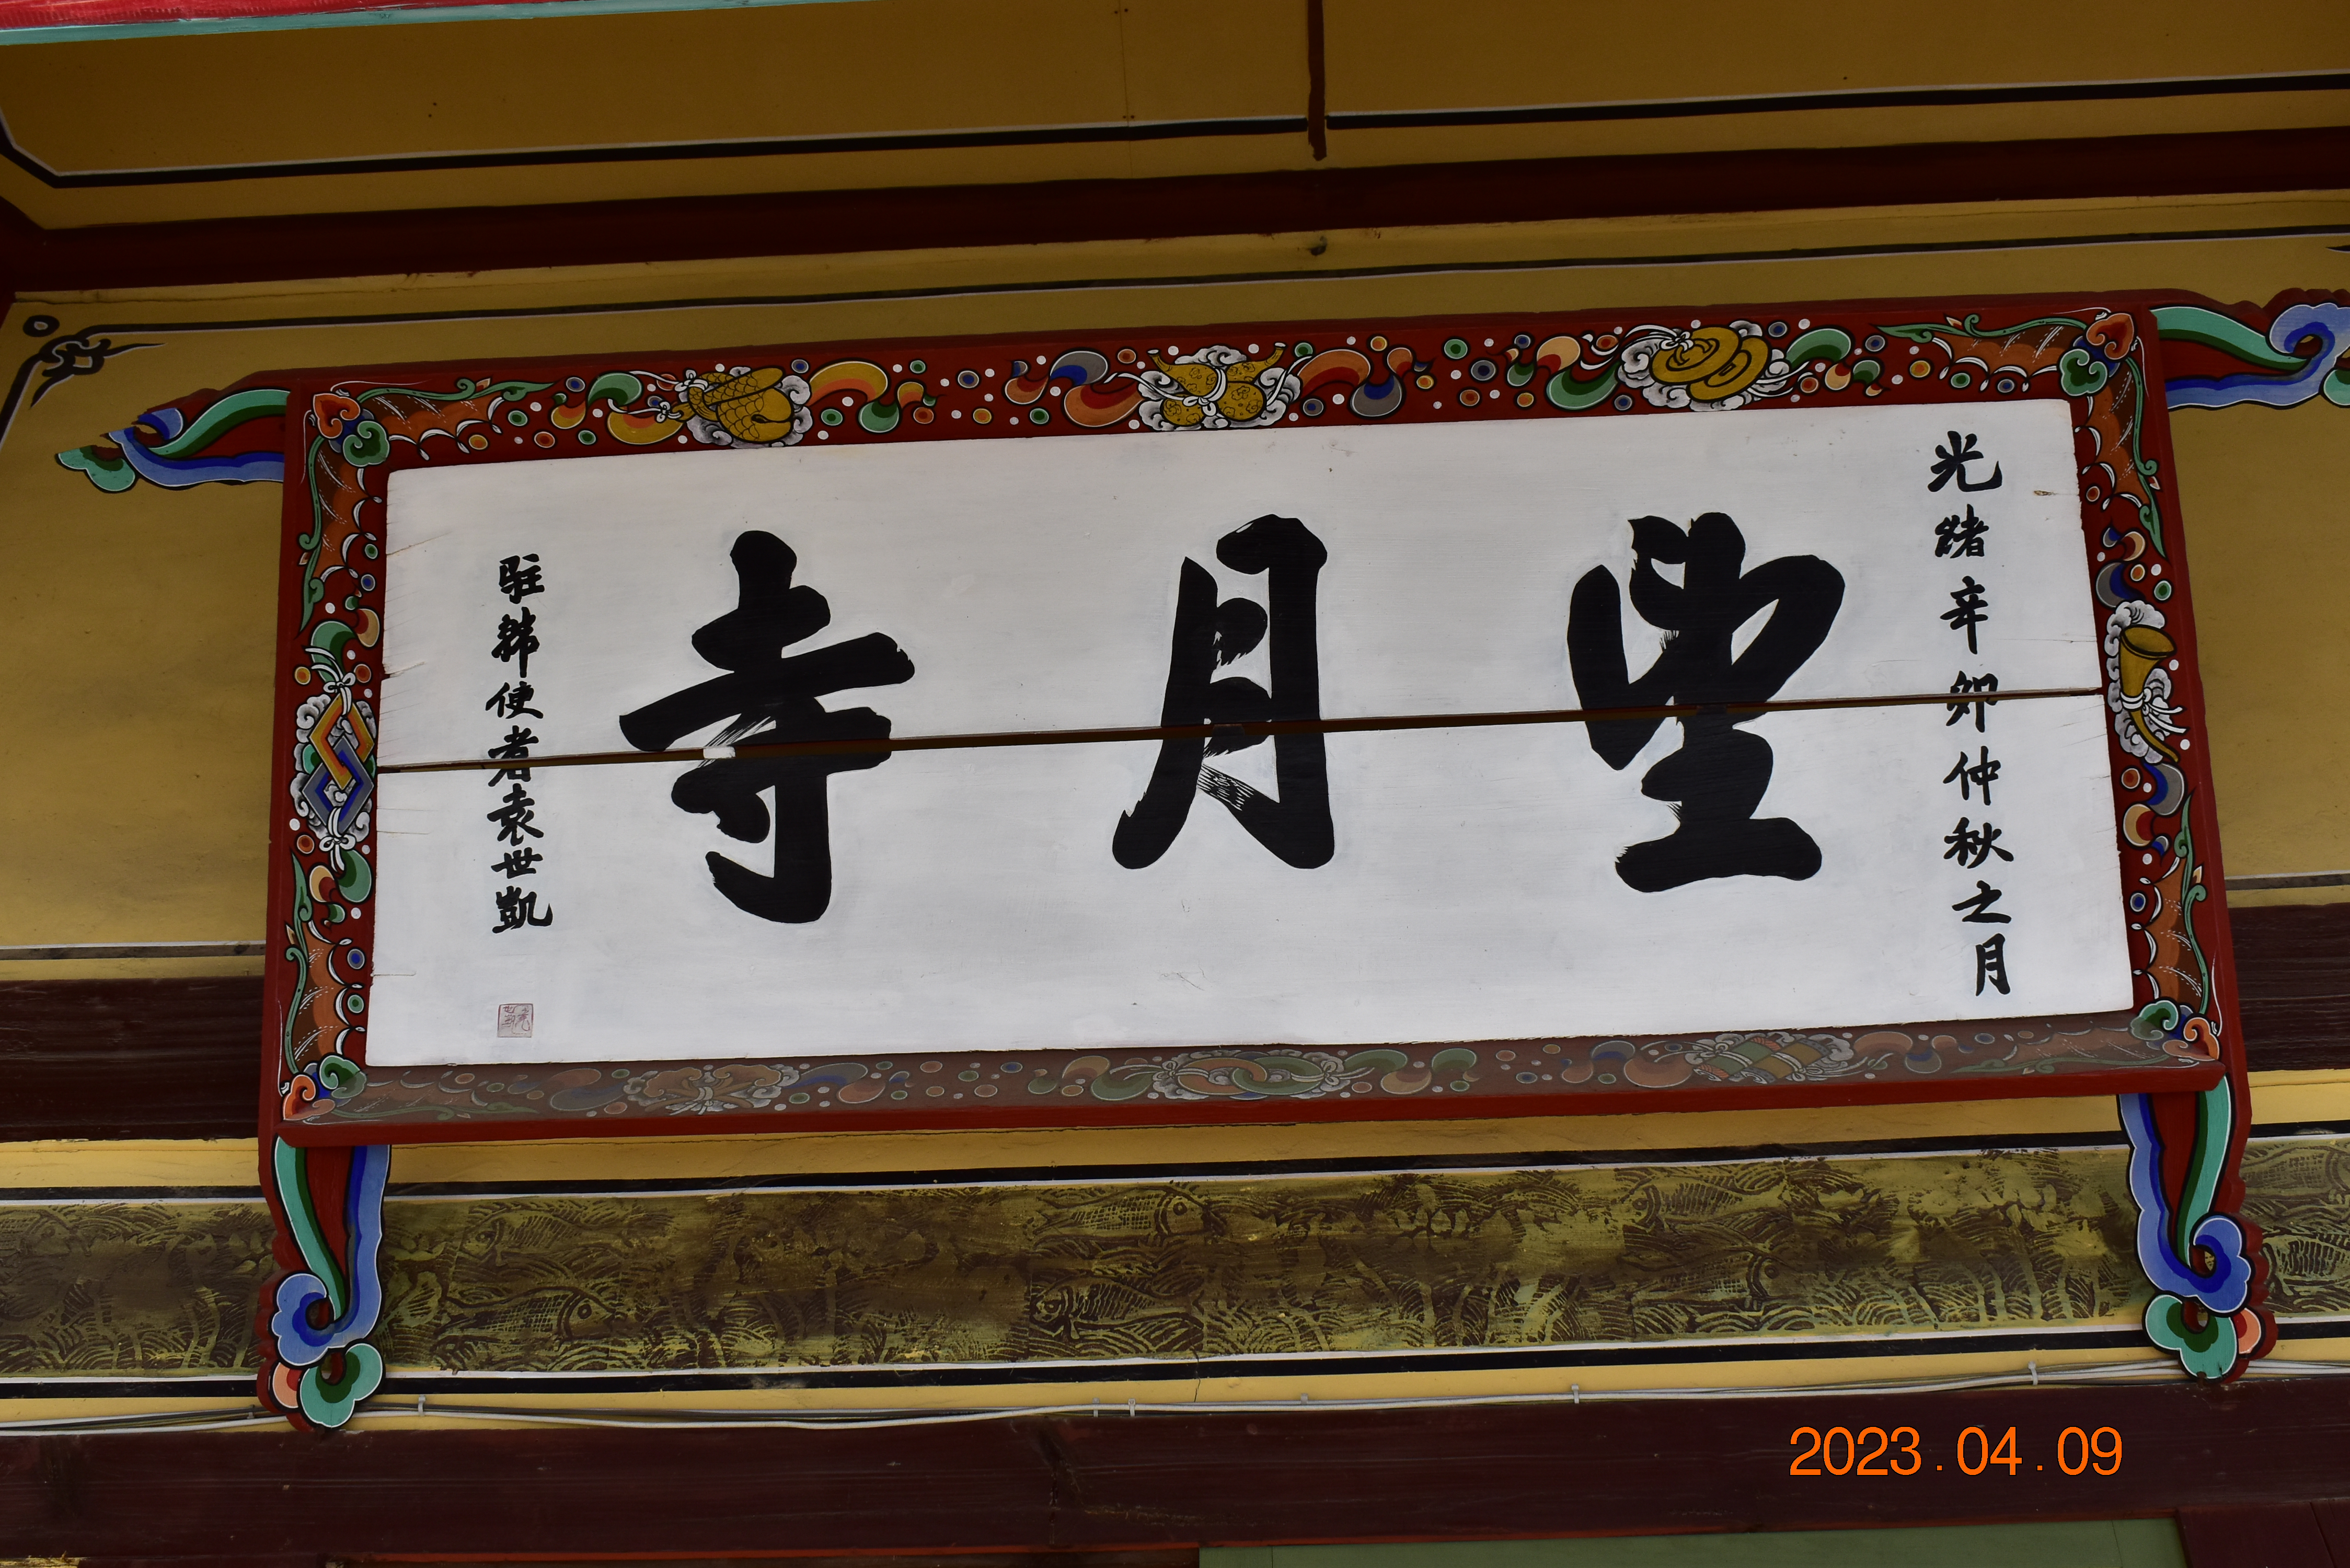 光緒辛卯仲秋之月
望月寺
駐韓使者袁世凱
2023.04.09